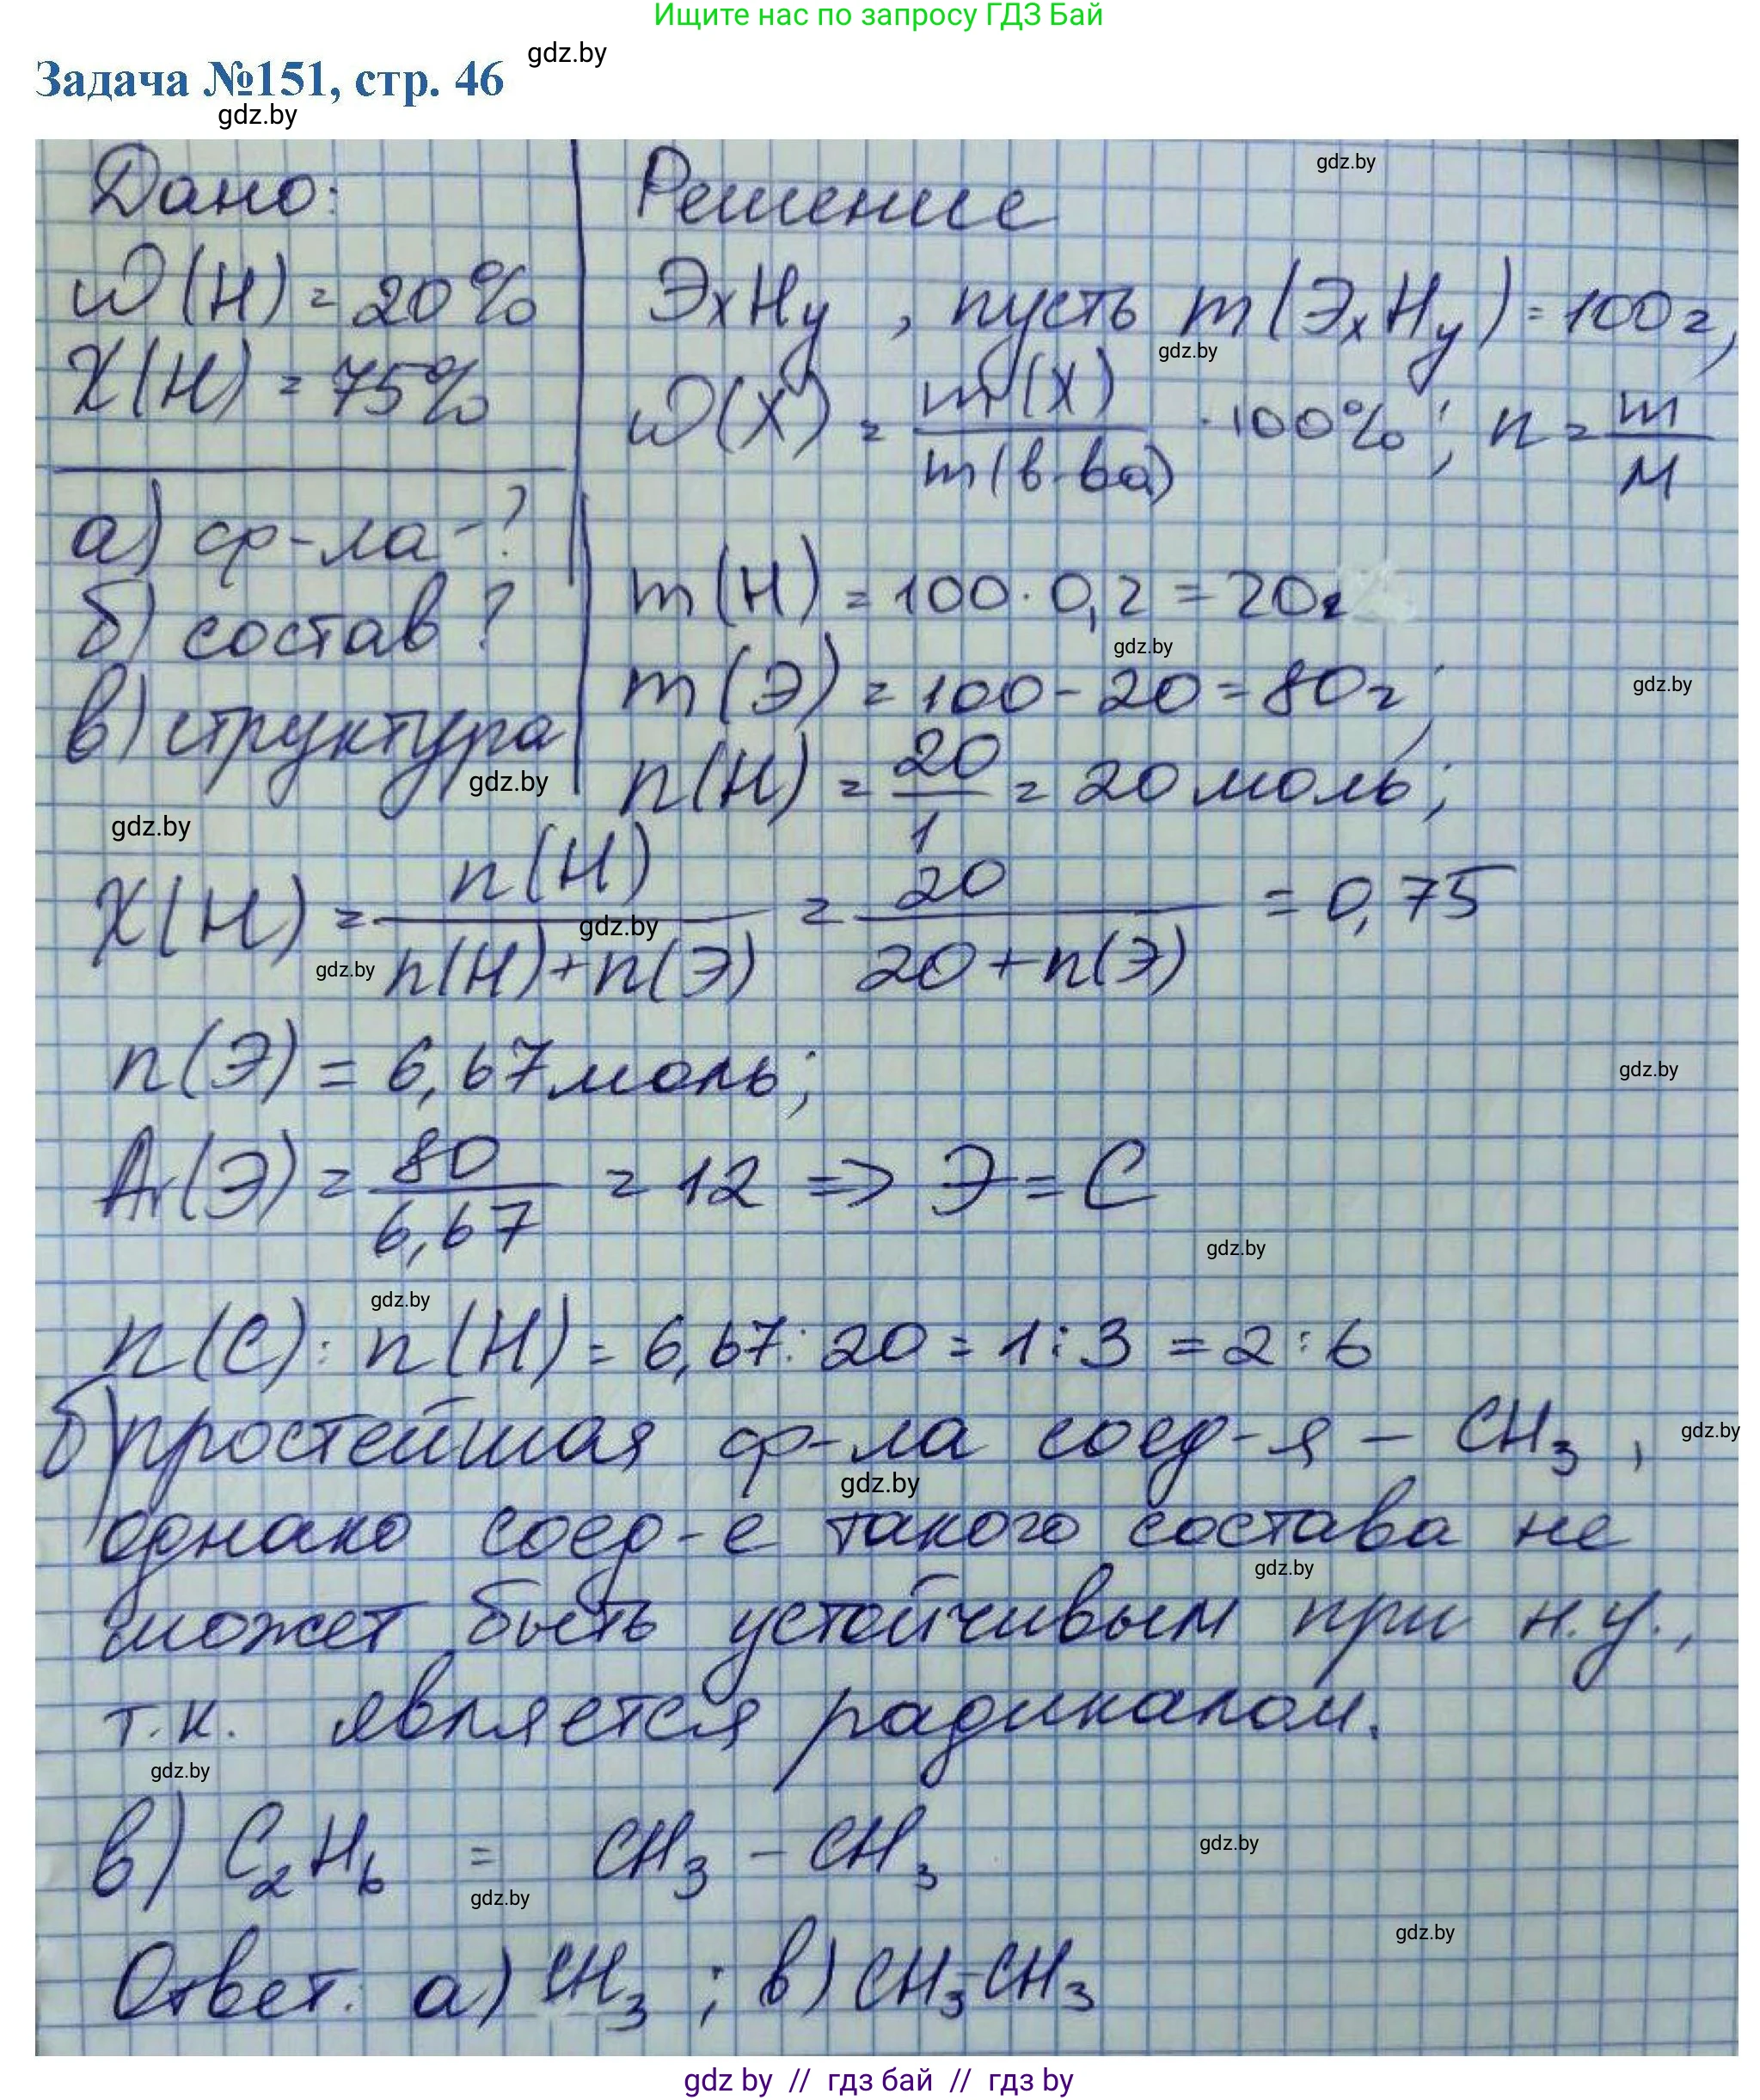 Ищите нас по запросу ГДЗ Бай
gdz.by
Задача №151, стр. 46
gdz.by
Дано:
ω(H) = 20%
X(H) = 75%
а) ф-ла -?
б) состав ?
в) структура
gdz.by
gdz.by
Решение
gdz.by
ЭxHy , пусть m(ЭxHy) = 100 г,
gdz.by
ω(X) = m(X) / m(в-ва) · 100% ; n = m / M
m(H) = 100 · 0,2 = 20г
gdz.by
m(Э) = 100 - 20 = 80г;
gdz.by
n(H) = 20 / 1 = 20 моль;
X(H) = n(H) / n(H)+n(Э) = 20 / 20+n(Э) = 0,75
gdz.by
gdz.by
n(Э) = 6,67 моль;
gdz.by
Ar(Э) = 80 / 6,67 = 12 => Э = C
gdz.by
gdz.by
n(C) : n(H) = 6,67 : 20 = 1 : 3 = 2 : 6
б) простейшая ф-ла соед-я - CH3 ,
gdz.by
gdz.by
однако соед-е такого состава не
gdz.by
может быть устойчивым при н.у.,
т.к. является радикалом.
gdz.by
в) C2H6 = CH3 - CH3
gdz.by
gdz.by
gdz.by
Ответ: а) CH3 ; в) CH3-CH3
gdz by // гдз бай // gdz by